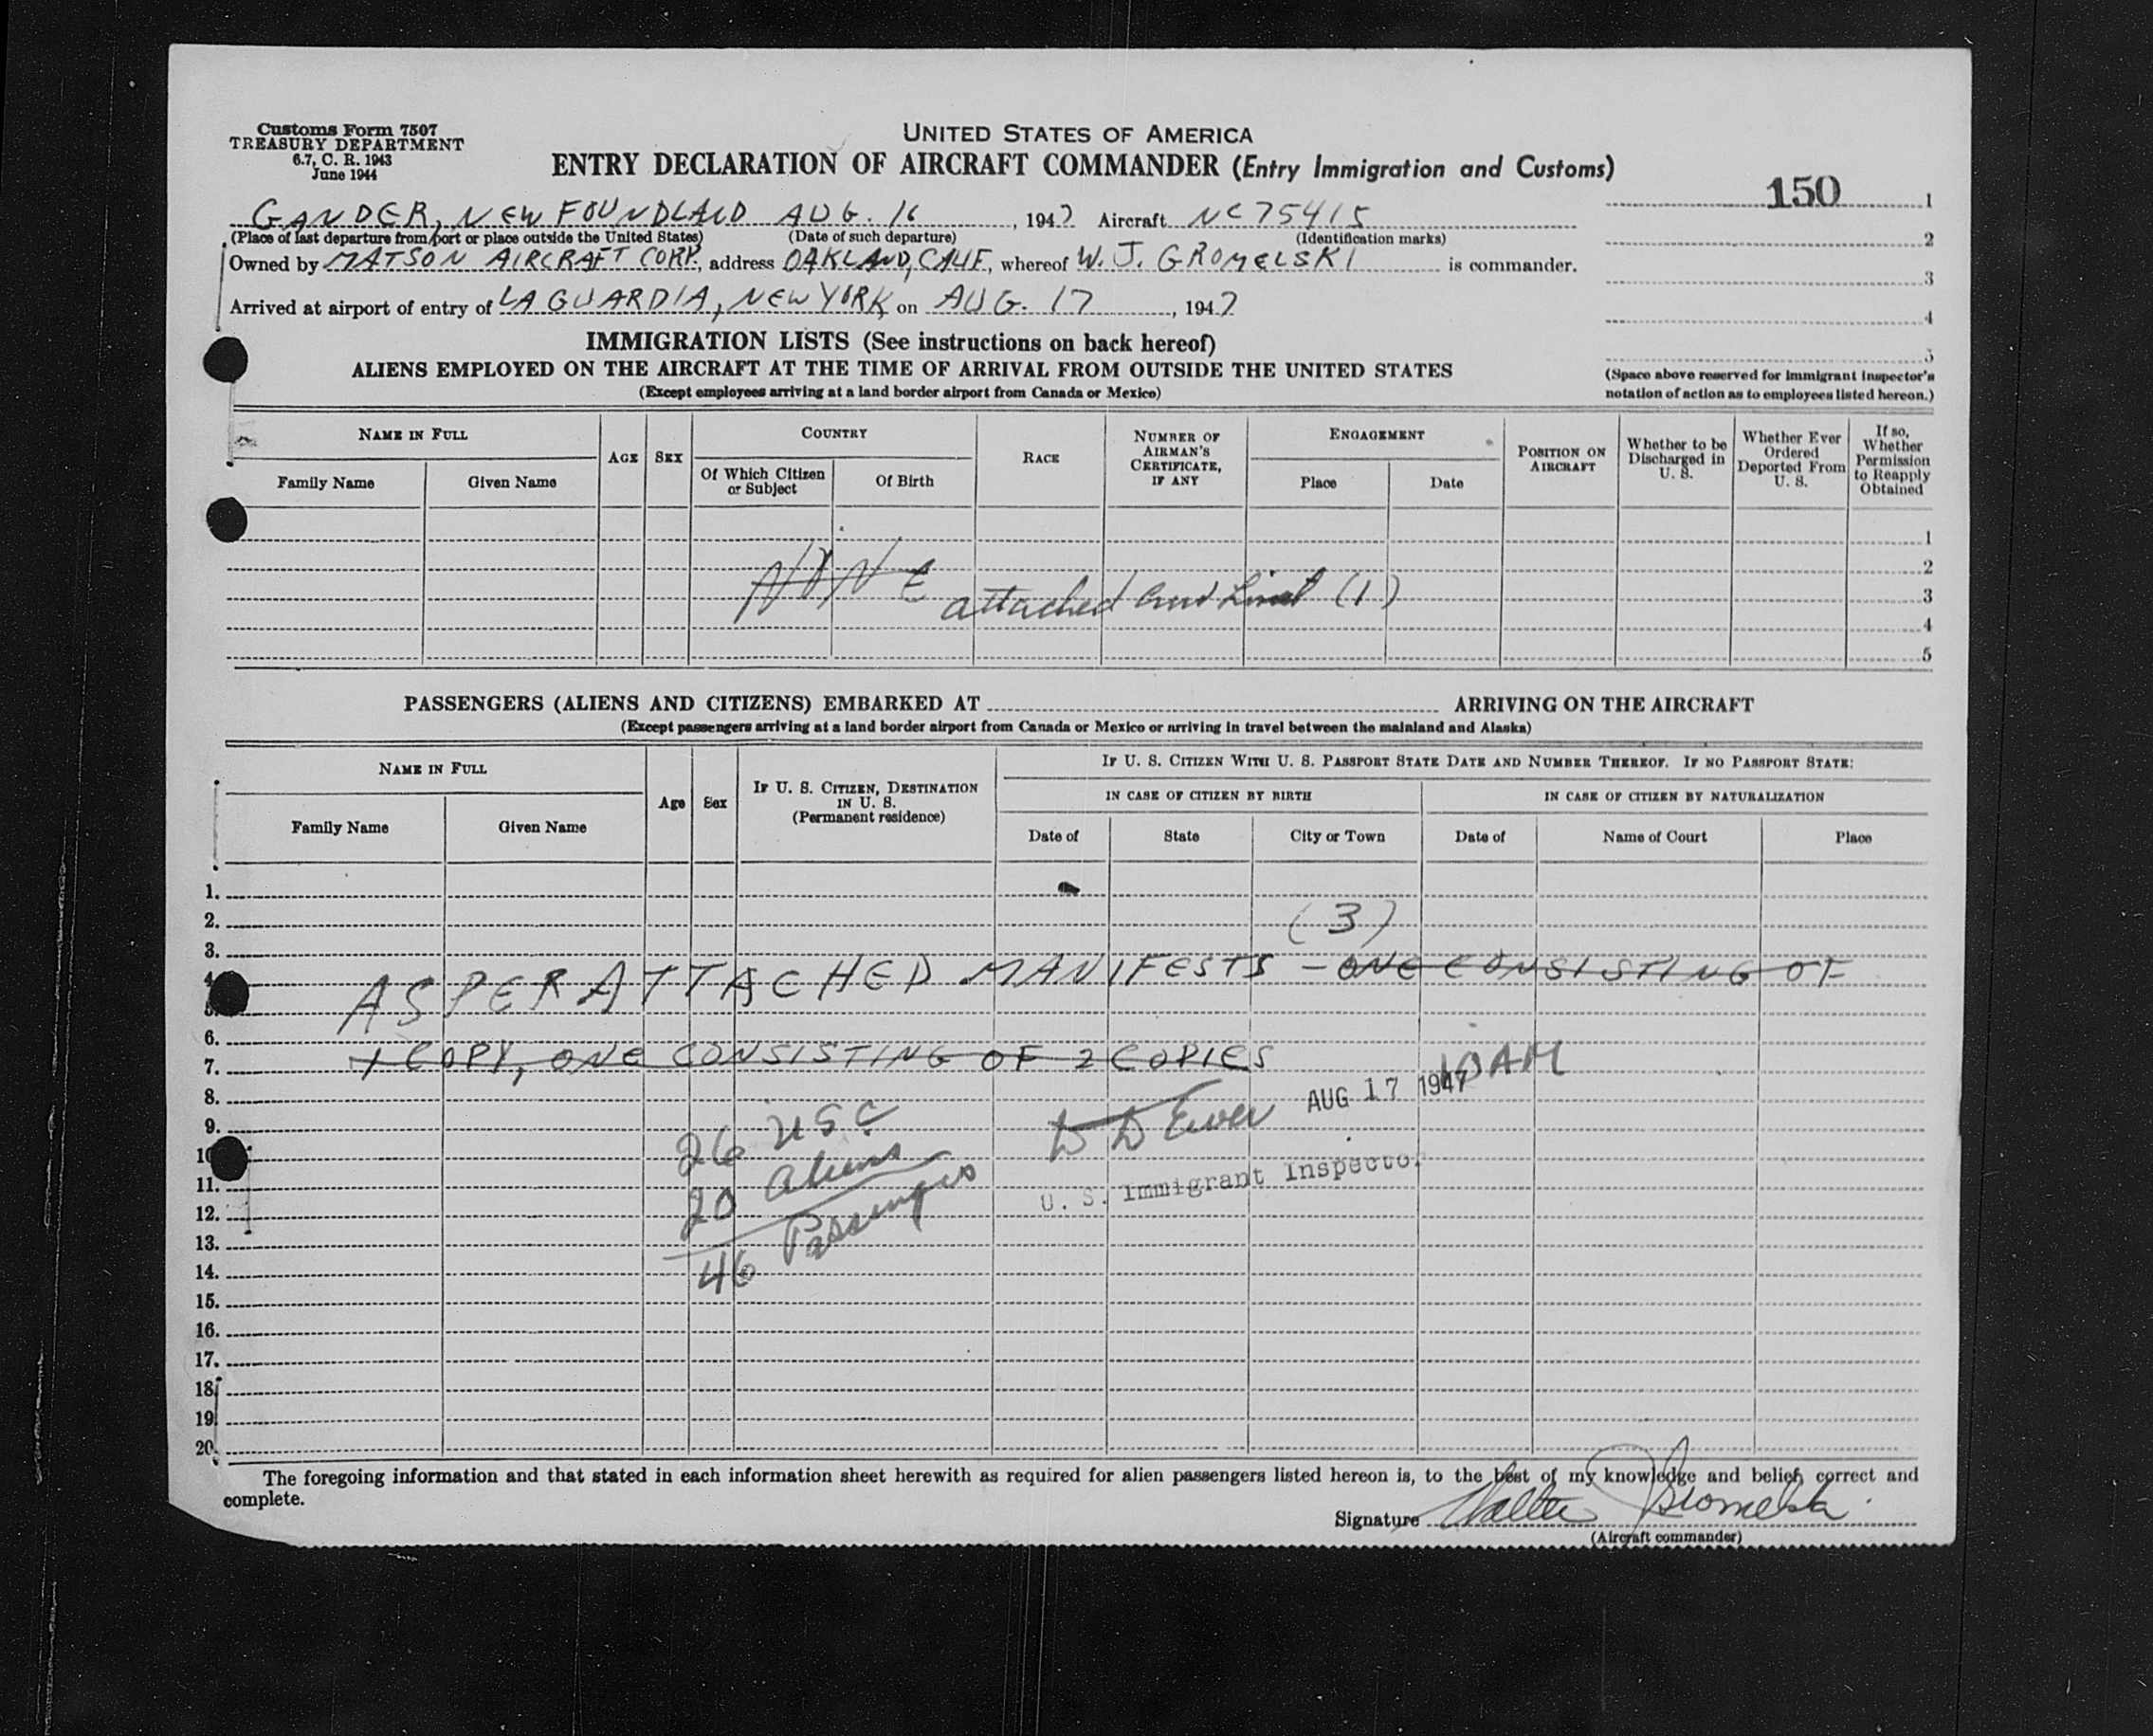 Customs Form 7507
TREASURY DEPARTMENT
6.7, C. R. 1943
June 1944
UNITED STATES OF AMERICA
ENTRY DECLARATION OF AIRCRAFT COMMANDER (Entry Immigration and Customs)
150 1
2
3
4
5
(Space above reserved for Immigrant Inspector's
notation of action as to employees listed hereon.)
GANDER, NEWFOUNDLAND AUG. 16, 1947 Aircraft NC75415
(Place of last departure from port or place outside the United States) (Date of such departure) (Identification marks)
Owned by MATSON AIRCRAFT CORP., address OAKLAND, CALIF., whereof W. J. GROMELSKI is commander.
Arrived at airport of entry of LA GUARDIA, NEW YORK on AUG. 17, 1947
IMMIGRATION LISTS (See instructions on back hereof)
ALIENS EMPLOYED ON THE AIRCRAFT AT THE TIME OF ARRIVAL FROM OUTSIDE THE UNITED STATES
(Except employees arriving at a land border airport from Canada or Mexico)
NAME IN FULL
Family Name
Given Name
AGE
SEX
COUNTRY
Of Which Citizen
or Subject
Of Birth
RACE
NUMBER OF
AIRMAN'S
CERTIFICATE,
IF ANY
ENGAGEMENT
Place
Date
POSITION ON
AIRCRAFT
Whether to be
Discharged in
U. S.
Whether Ever
Ordered
Deported From
U. S.
If so,
Whether
Permission
to Reapply
Obtained
1
2
NONE
attached (1)
3
4
5
PASSENGERS (ALIENS AND CITIZENS) EMBARKED AT ARRIVING ON THE AIRCRAFT
(Except passengers arriving at a land border airport from Canada or Mexico or arriving in travel between the mainland and Alaska)
NAME IN FULL
Family Name
Given Name
Age
Sex
IF U. S. CITIZEN, DESTINATION
IN U. S.
(Permanent residence)
IF U. S. CITIZEN WITH U. S. PASSPORT STATE DATE AND NUMBER THEREOF. IF NO PASSPORT STATE:
IN CASE OF CITIZEN BY BIRTH
Date of
State
City or Town
IN CASE OF CITIZEN BY NATURALIZATION
Date of
Name of Court
Place
1.
2. (3)
3.
4. AS PER ATTACHED MANIFESTS - ONE CONSISTING OF
6.
7. 1 COPY, ONE CONSISTING OF 2 COPIES
8. AUG 17 1947 10AM
9. 26 USC
10
11. 20 Aliens
U. S. Immigrant Inspector
12.
13.
14. 46 Passengers
15.
16.
17.
18
19
20.
The foregoing information and that stated in each information sheet herewith as required for alien passengers listed hereon is, to the best of my knowledge and belief, correct and
complete.
Signature Walter J Gromelski
(Aircraft commander)